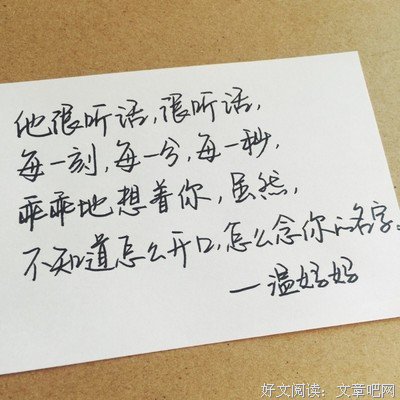 他很听话,很听话,
每一刻,每一分,每一秒,
乖乖地想着你,虽然,
不知道怎么开口,怎么念你的名字。
—温妈妈
好文阅读:文章吧网